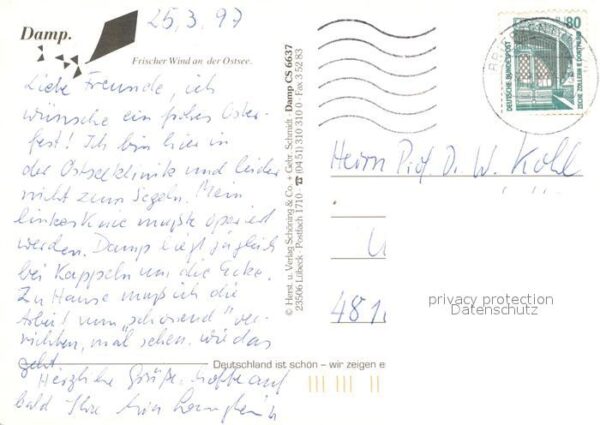 25.3.97
Damp.
Frischer Wind an der Ostsee.
Liebe Freunde, ich
wünsche ein frohes Oster-
fest! Ich bin hier in
der Ostseeklinik und leider
nicht zum Segeln. Mein
linkes Knie mußte operiert
werden. Damp liegt ja gleich
bei Kappeln um die Ecke.
Zu Hause muß ich die
Arbeit nun "schonend" ver-
richten, mal sehen wie das
geht.
Herzliche Grüße, hoffe auf
bald Ihre
© Herst. u. Verlag Schöning & Co. + Gebr. Schmidt · Damp CS 6637
23506 Lübeck · Postfach 1710 · ☎ (04 51) 310 310 0 · Fax 3 52 83
80
DEUTSCHE BUNDESPOST
ZECHE ZOLLERN II, DORTMUND
Herrn Prof. D. W. Kohl
481
privacy protection
Datenschutz
Deutschland ist schön – wir zeigen e